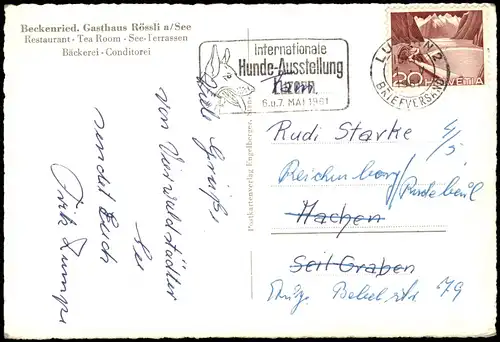 Beckenried. Gasthaus Rössli a/See
Restaurant - Tea Room - See-Terrassen
Bäckerei - Conditorei
Viele Grüße
vom Vierwaldstädter
See
sendet Euch
Fritz
Internationale
Hunde-Ausstellung
LUZERN
6.u.7. MAI 1961
LUZERN 2
BRIEFVERSAND
20
HELVETIA
Postkartenverlag Engelberger
Herrn
Rudi Starke
Reichenberg/
Radebeul
Aachen
Seil Graben
Aug. Bebel str. 79